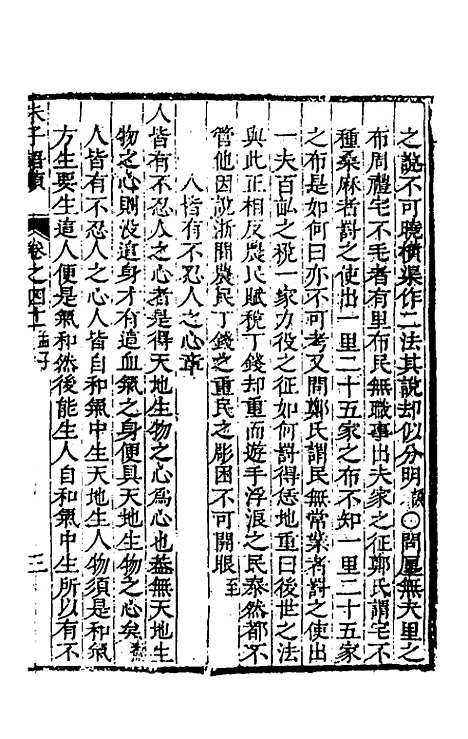 之說不可曉橫渠作二法其說却似分明○問廛無夫里之
布周禮宅不毛者有里布民無職事出夫家之征鄭氏謂宅不
種桑麻者罰之使出一里二十五家之布不知一里二十五家
之布是如何曰亦不可考又問鄭氏謂民無常業者罰之使出
一夫百畆之稅一家力役之征如何罰得恁地重曰後世之法
與此正相反農民賦稅丁錢却重而遊手浮浪之民泰然都不
管他因說浙間農民丁錢之重民之彫困不可開眼 至
人皆有不忍人之心章
人皆有不忍人之心者是得天地生物之心為心也蓋無天地生
物之心則沒這身才有這血氣之身便具天地生物之心矣
人皆有不忍人之心人皆自和氣中生天地生人物須是和氣
方生要生這人便是氣和然後能生人自和氣中生所以有不
朱子語類 卷之四十 孟子 三